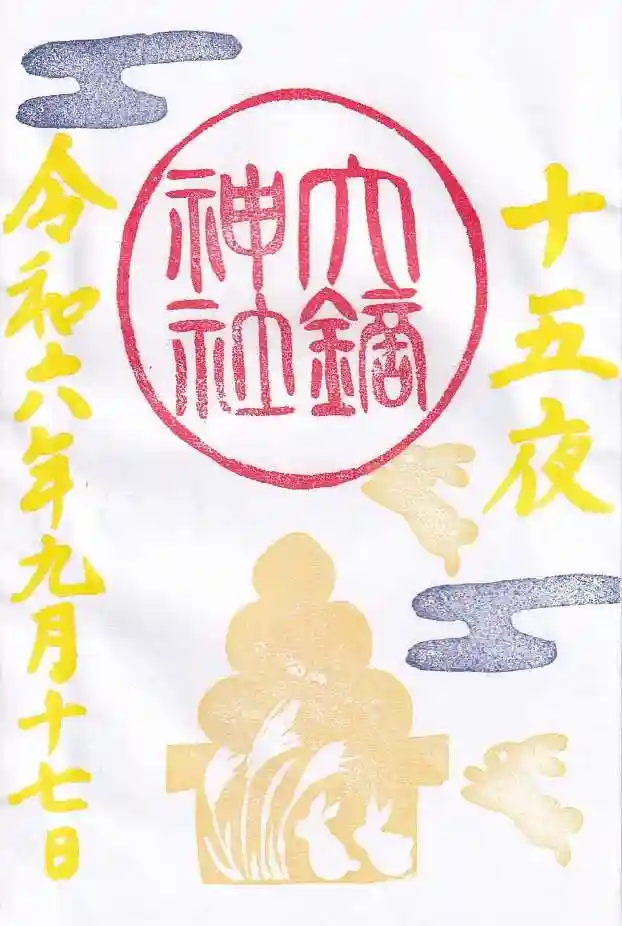 十五夜
大鏑
神社
令和六年九月十七日